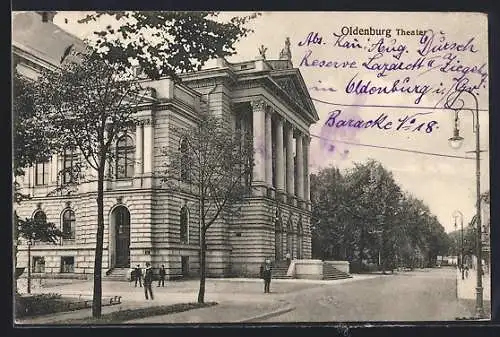 Oldenburg Theater
Abs. Kan. Aug. Dursch
Reserve Lazarett
in Oldenburg i/ Gr.
Baracke No 18.